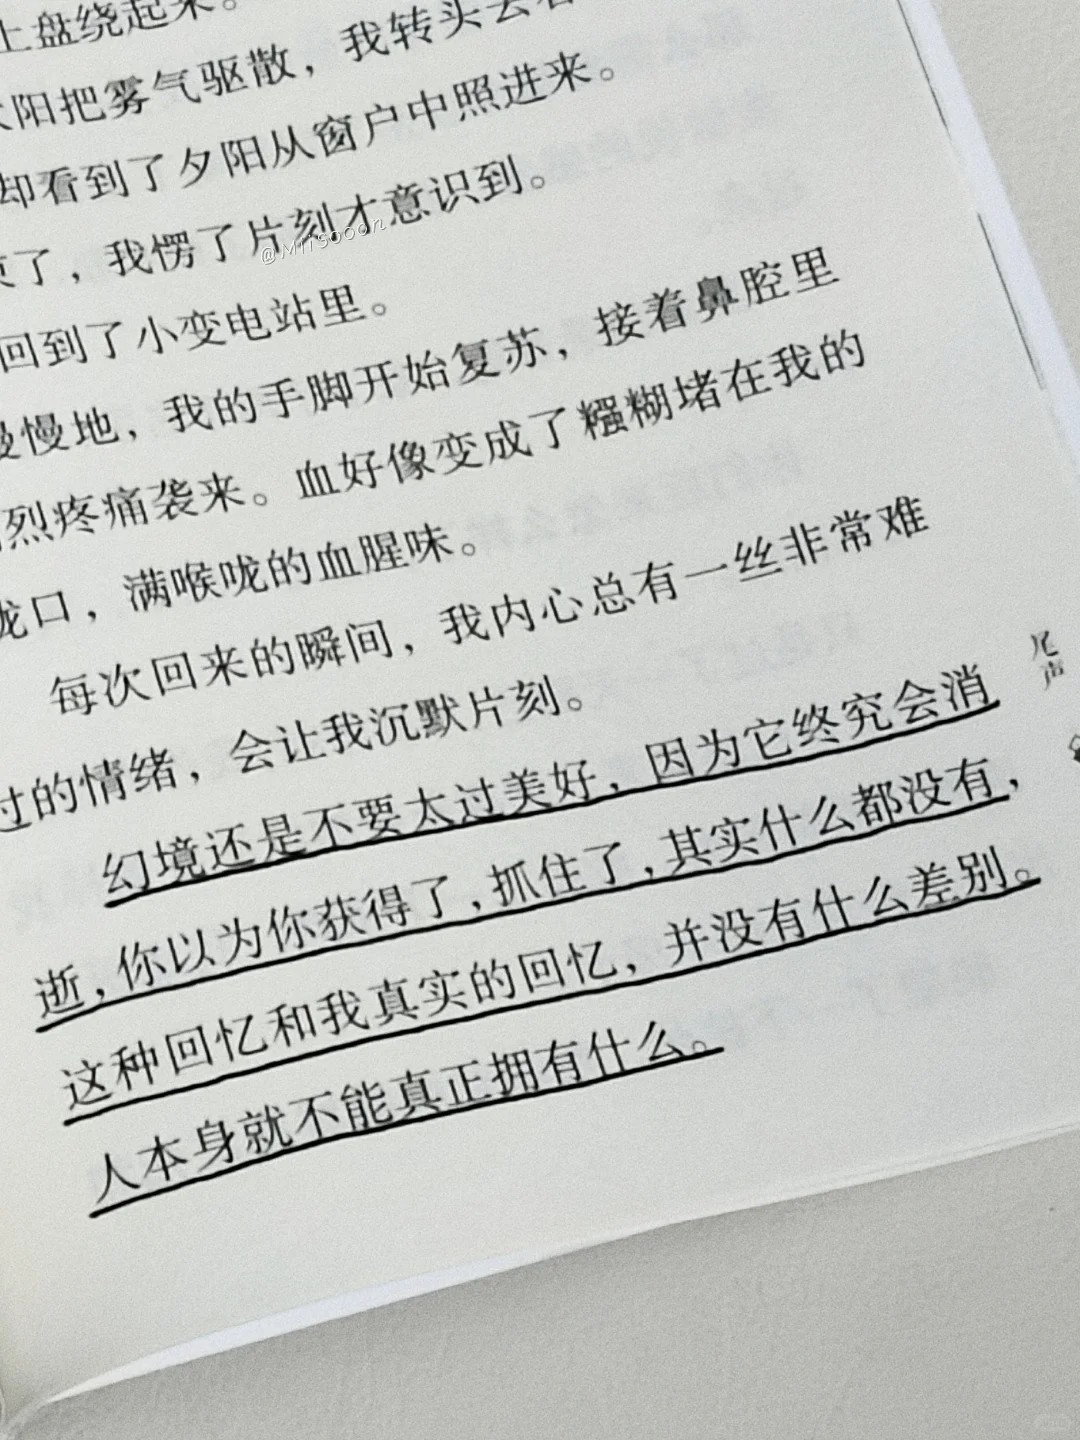 上盘绕起来。
阳把雾气驱散，我转头去看
却看到了夕阳从窗户中照进来。
了，我愣了片刻才意识到。
@MIISooon
回到了小变电站里。
慢慢地，我的手脚开始复苏，接着鼻腔里
烈疼痛袭来。血好像变成了糨糊堵在我的
口，满喉咙的血腥味。
每次回来的瞬间，我内心总有一丝非常难
过的情绪，会让我沉默片刻。
幻境还是不要太过美好，因为它终究会消
逝，你以为你获得了，抓住了，其实什么都没有，
这种回忆和我真实的回忆，并没有什么差别。
人本身就不能真正拥有什么。
尾声